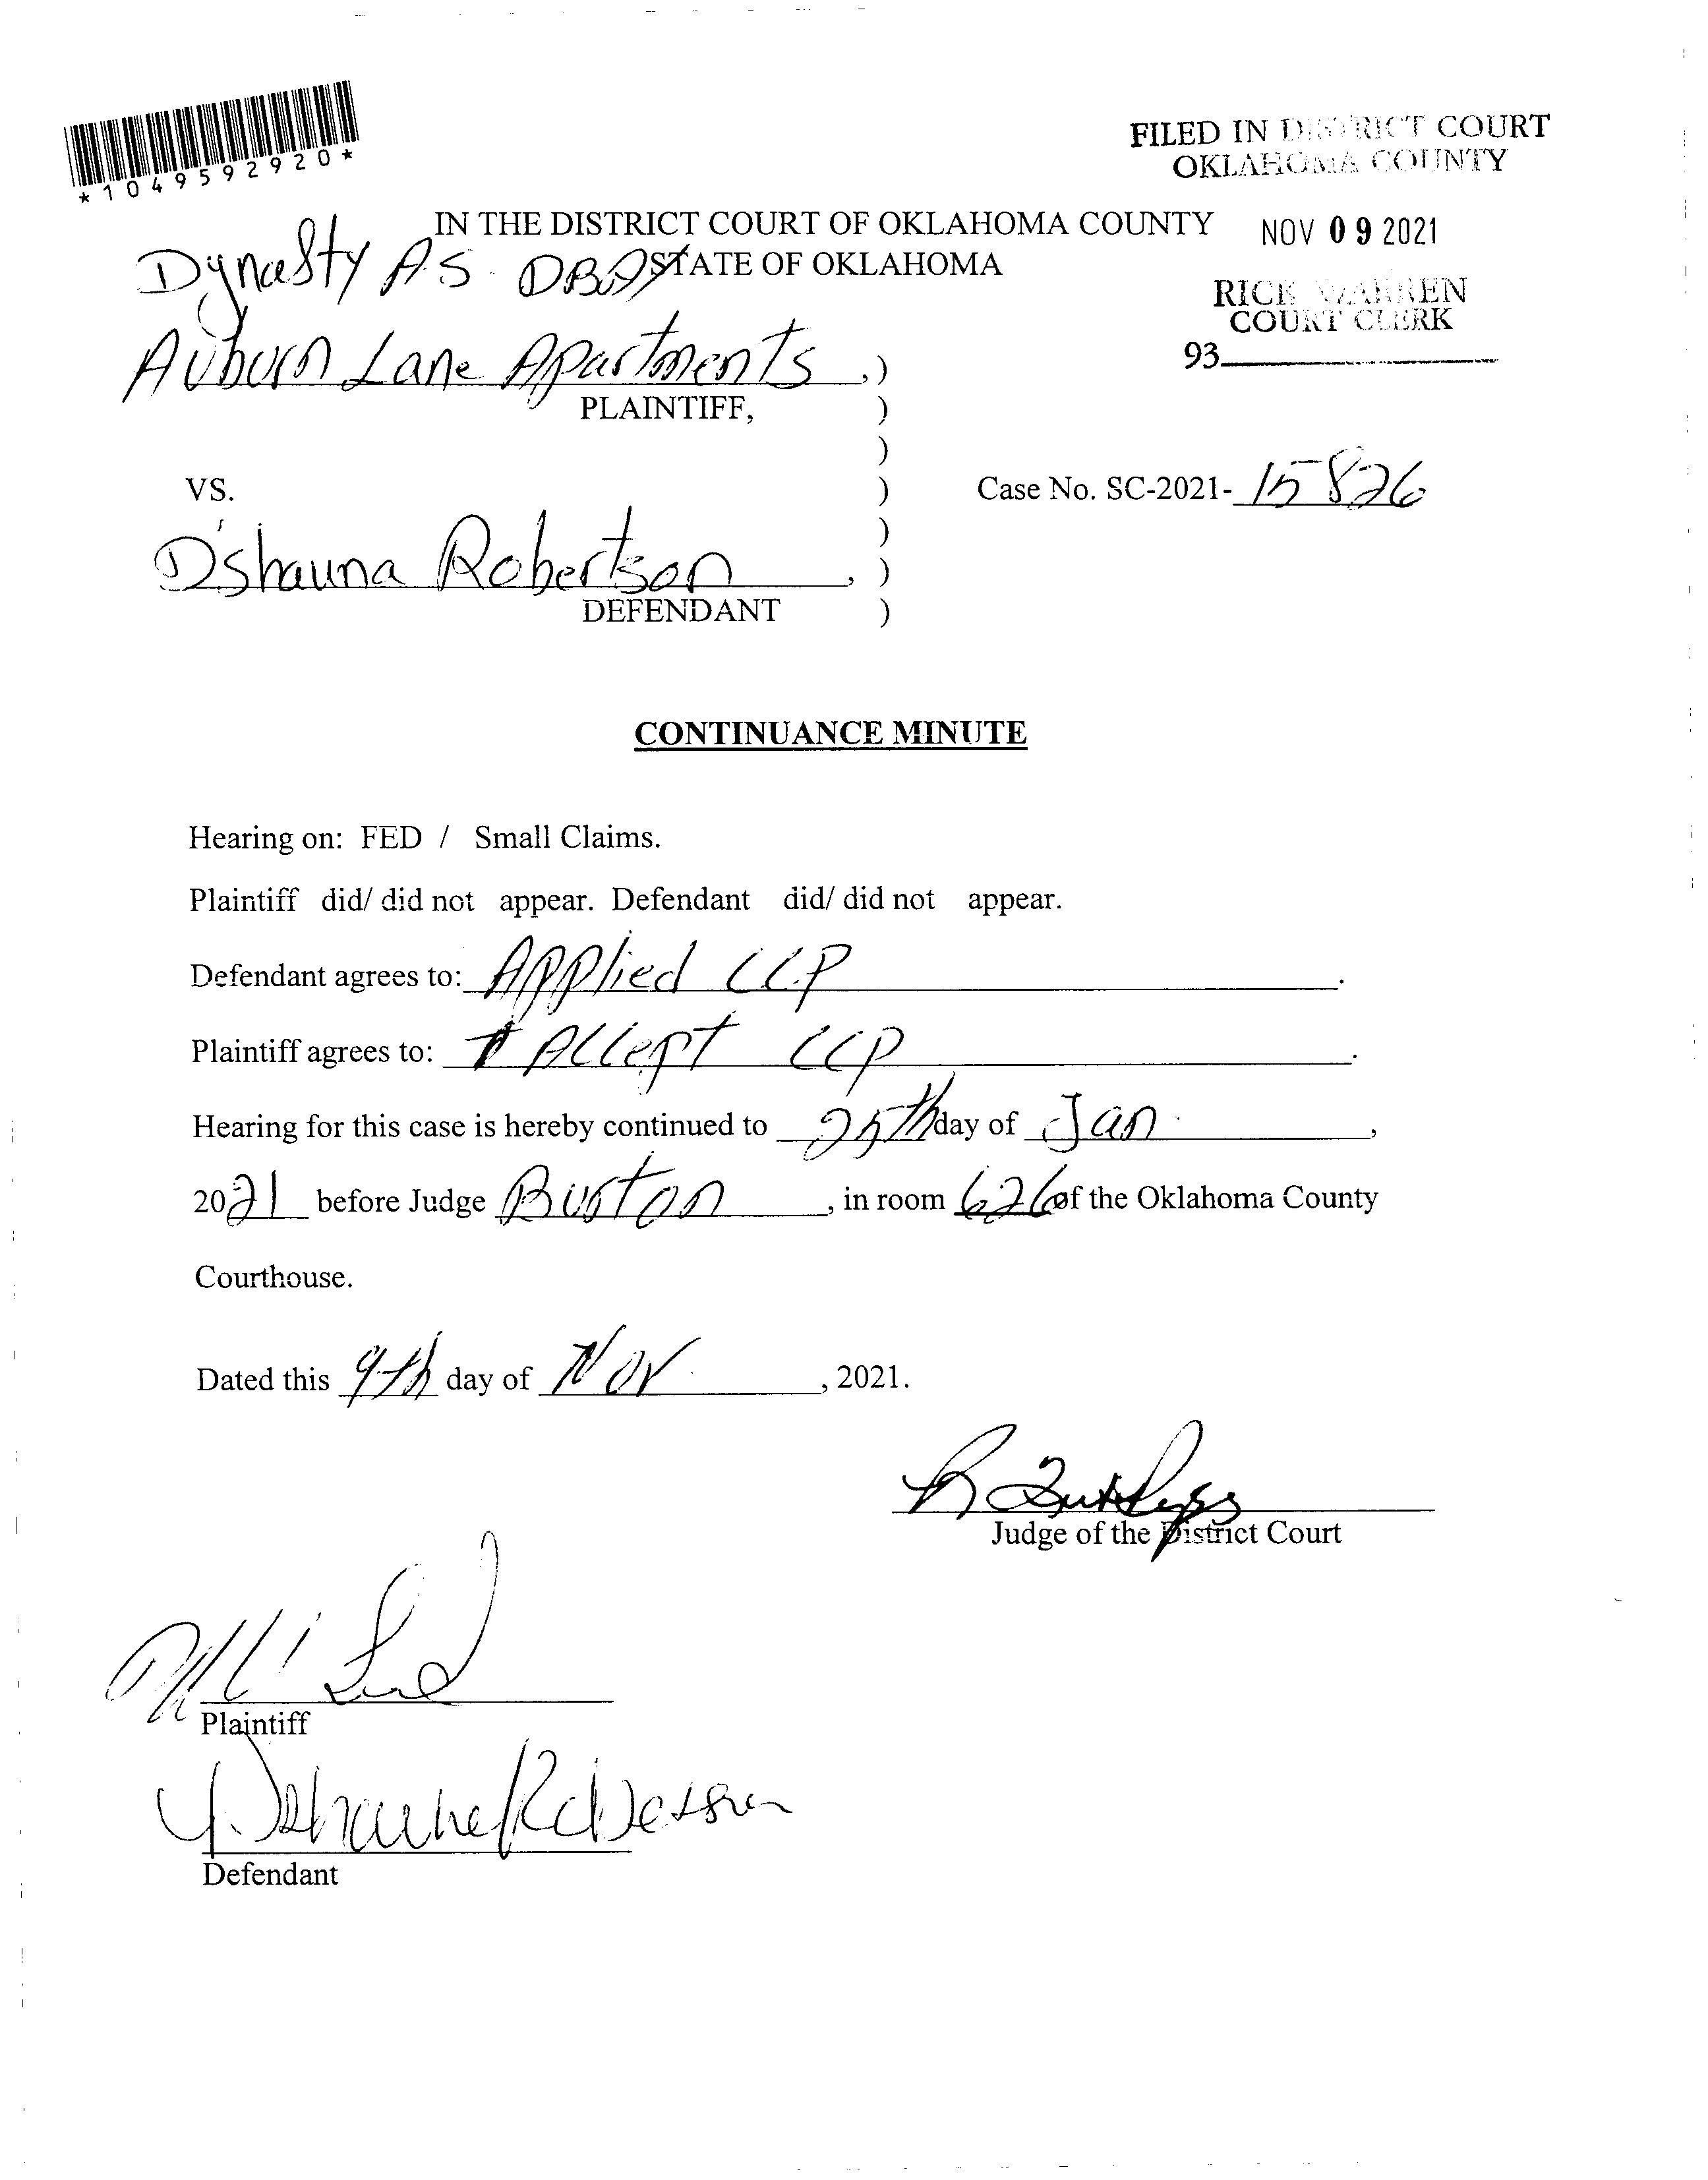 *1049592920*
FILED IN DISTRICT COURT
OKLAHOMA COUNTY
NOV 09 2021
RICK WARREN
COURT CLERK
93
IN THE DISTRICT COURT OF OKLAHOMA COUNTY
STATE OF OKLAHOMA
Dynasty AS DBA
Auburn Lane Apartments,)
PLAINTIFF, )
)
VS. ) Case No. SC-2021-15826
)
D'shauna Robertson, )
DEFENDANT )
CONTINUANCE MINUTE
Hearing on: FED / Small Claims.
Plaintiff did/ did not appear. Defendant did/ did not appear.
Defendant agrees to: Applied CCP.
Plaintiff agrees to: Accept CCP.
Hearing for this case is hereby continued to 25th day of Jan,
2021 before Judge Burton, in room 626 of the Oklahoma County
Courthouse.
Dated this 9th day of Nov, 2021.
Judge of the District Court
Plaintiff
Defendant